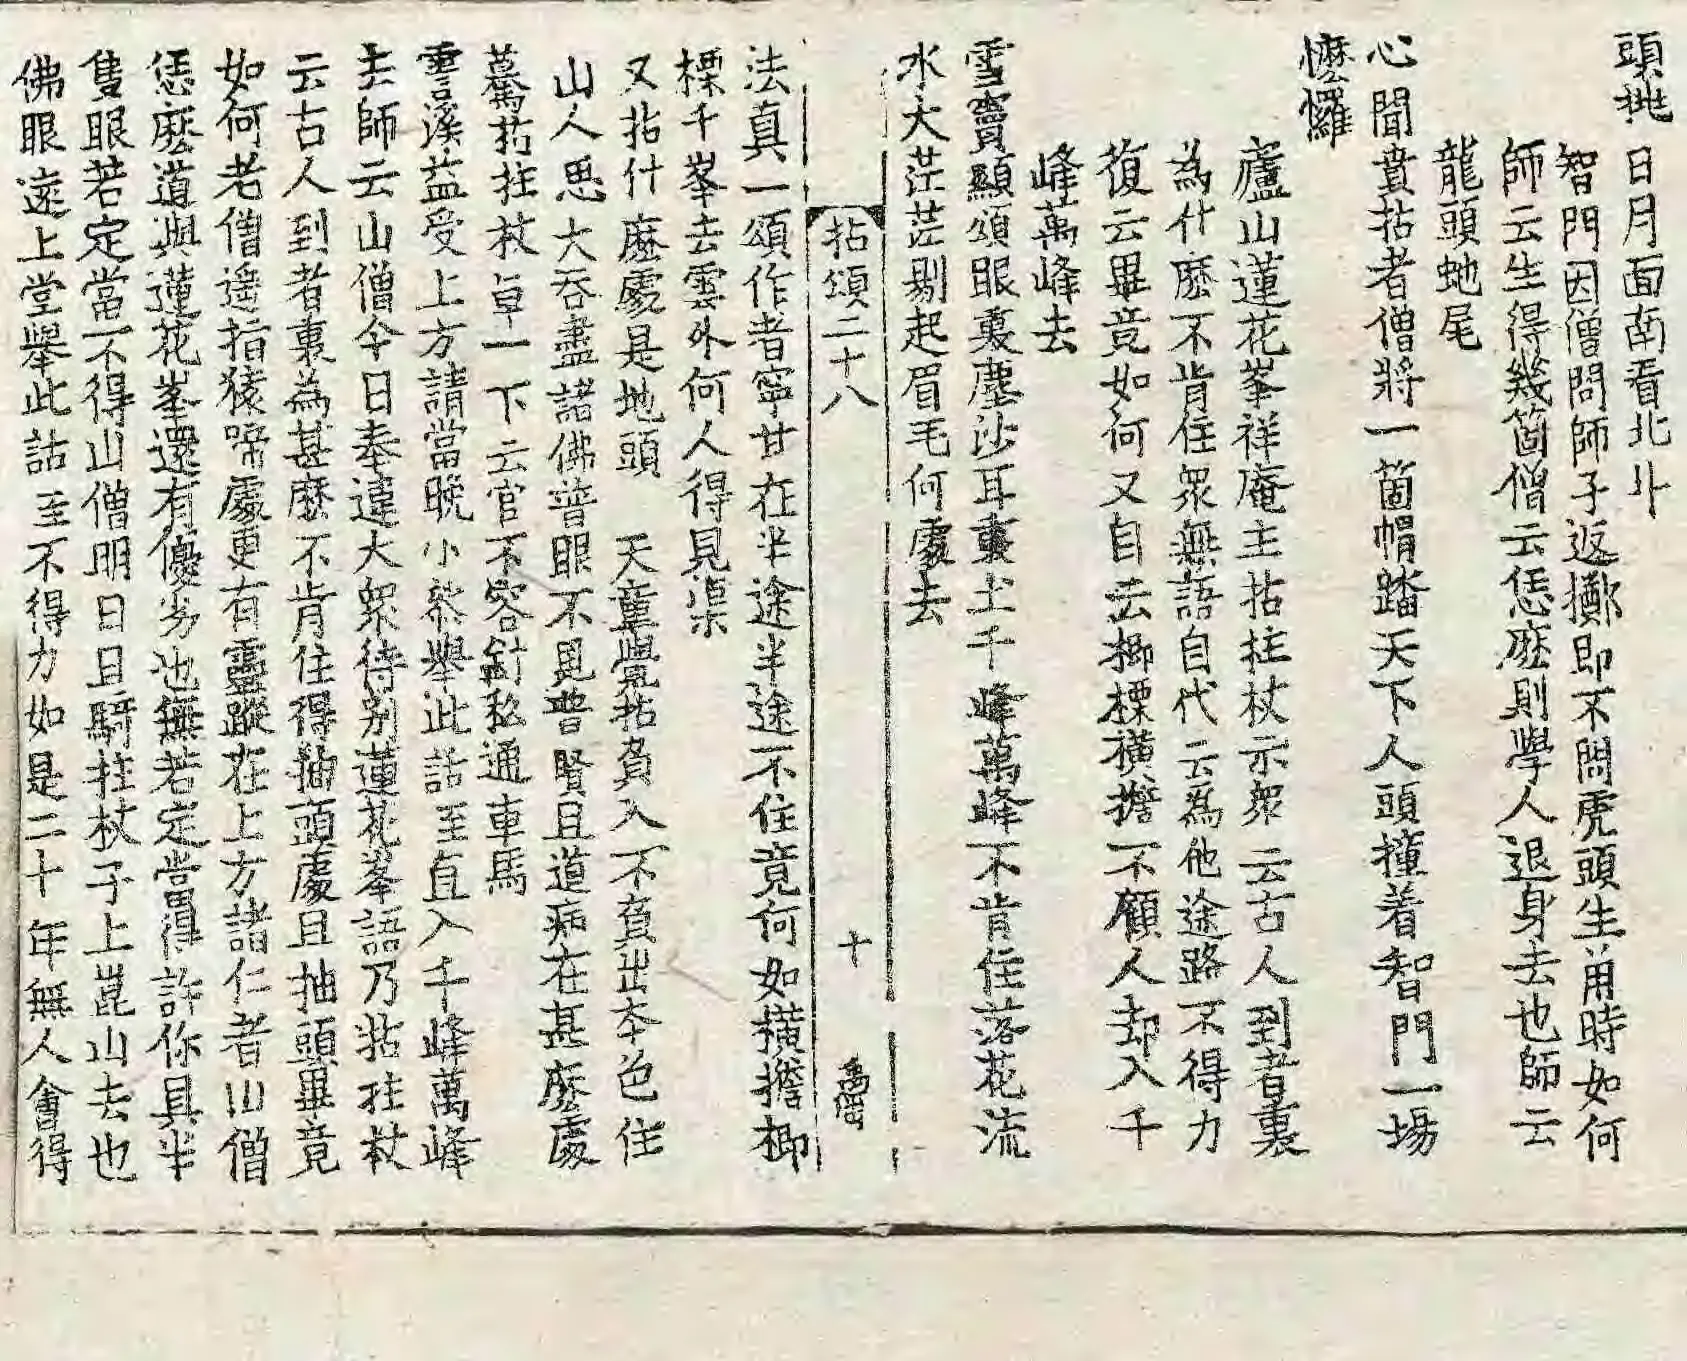 頭挑日月面南看北斗
智門因僧問師子返擲即不問虎頭生角時如何
師云生得幾箇僧云恁麽則學人退身去也師云
龍頭虵尾
心聞賁拈者僧將一箇帽踏天下人頭撞着智門一場
懡㦬
廬山蓮花峯祥庵主拈柱杖示衆云古人到者裏
為什麽不肯住衆無語自代云為他途路不得力
復云畢竟如何又自云楖㮚横擔不顧人却入千
峰萬峰去
雪竇顯頌眼裏塵沙耳裏土千峰萬峰不肯住落花流
水大茫茫剔起眉毛何處去
拈頌二十八
十
法真一頌作者寧甘在半途半途不住竟何如橫擔楖
㮚千峯去雲外何人得見渠
又拈什麽處是地頭 天童覺拈負入不負出本色住
山人思大吞盡諸佛普眼不見普賢且道病在甚麽處
驀拈拄杖卓一下云官不容針私通車馬
雪溪益受上方請當晚小叅擧此話至直入千峰萬峰
去師云山僧今日奉違大衆待别蓮花峯語乃拈拄杖
云古人到者裏為甚麽不肯住得抽頭處且抽頭畢竟
如何老僧遥指猿啼處更有靈蹤在上方諸仁者山僧
恁麽道與蓮花峯還有優劣也無若定當得許你具半
隻眼若定當不得山僧明日且騎拄杖子上崑山去也
佛眼遠上堂擧此話至不得力如是二十年無人會得